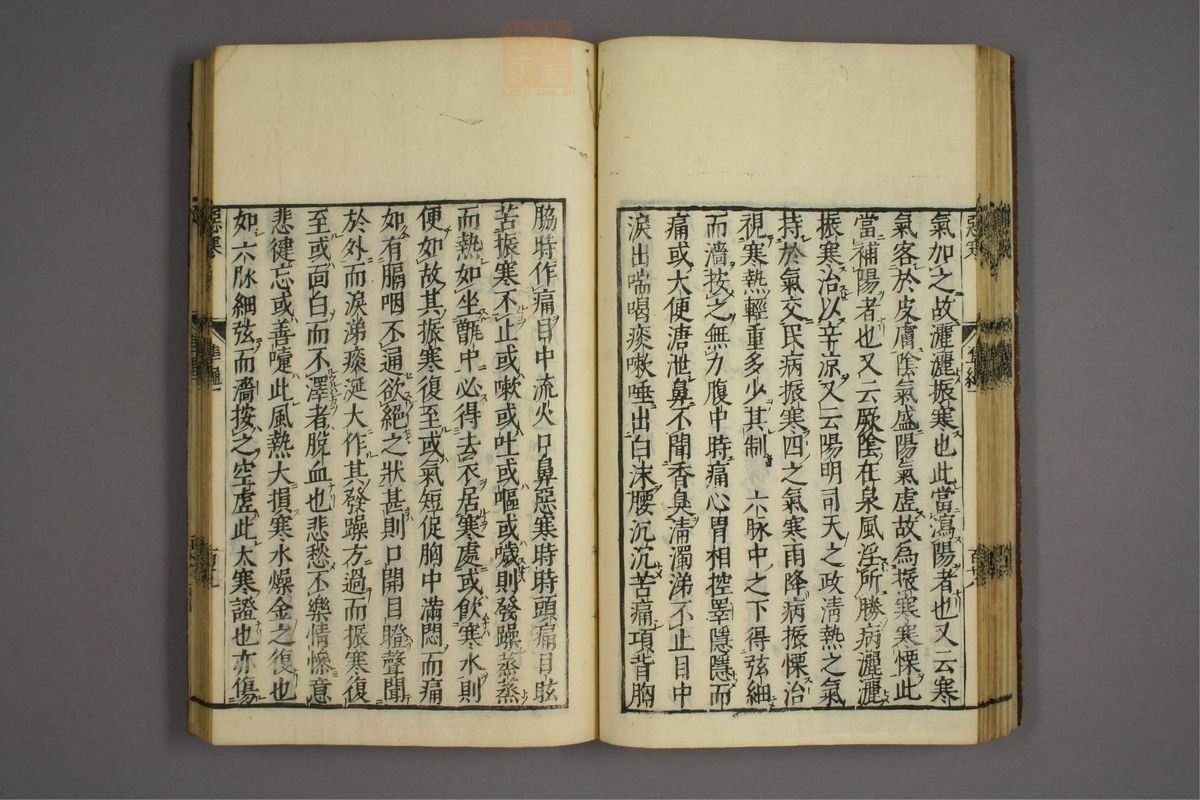 氣加之故灑灑振寒也此當瀉陽者也又云寒
氣客於皮膚陰氣盛陽氣虛故為振寒寒慄此
當補陽者也又云厥陰在泉風淫所勝病灑灑
振寒治以辛涼又云陽明司天之政清熱之氣
持於氣交民病振寒四之氣寒雨降病振慄治
視寒熱輕重多少其制 六脉中之下得弦細
而濇按之無力腹中時痛心胃相控睪隱隱而
痛或大便溏泄鼻不聞香臭清濁涕不止目中
淚出喘喝痰嗽唾出白沫腰沉沉苦痛項背胸
脇時作痛目中流火口鼻惡寒時時頭痛目眩
苦振寒不止或嗽或吐或嘔或噦則發躁蒸蒸
而熱如坐甑中必得去衣居寒處或飲寒水則
便如故其振寒復至或氣短促胸中滿悶而痛
如有膈咽不通欲絕之狀甚則口開目瞪聲聞
於外而淚涕痰涎大作其發躁方過而振寒復
至或面白而不澤者脫血也悲愁不樂情慘意
悲健忘或善嚏此風熱大損寒水燥金之復也
如六脉細弦而濇按之空虛此大寒證也亦傷
惡寒
惡寒
準繩